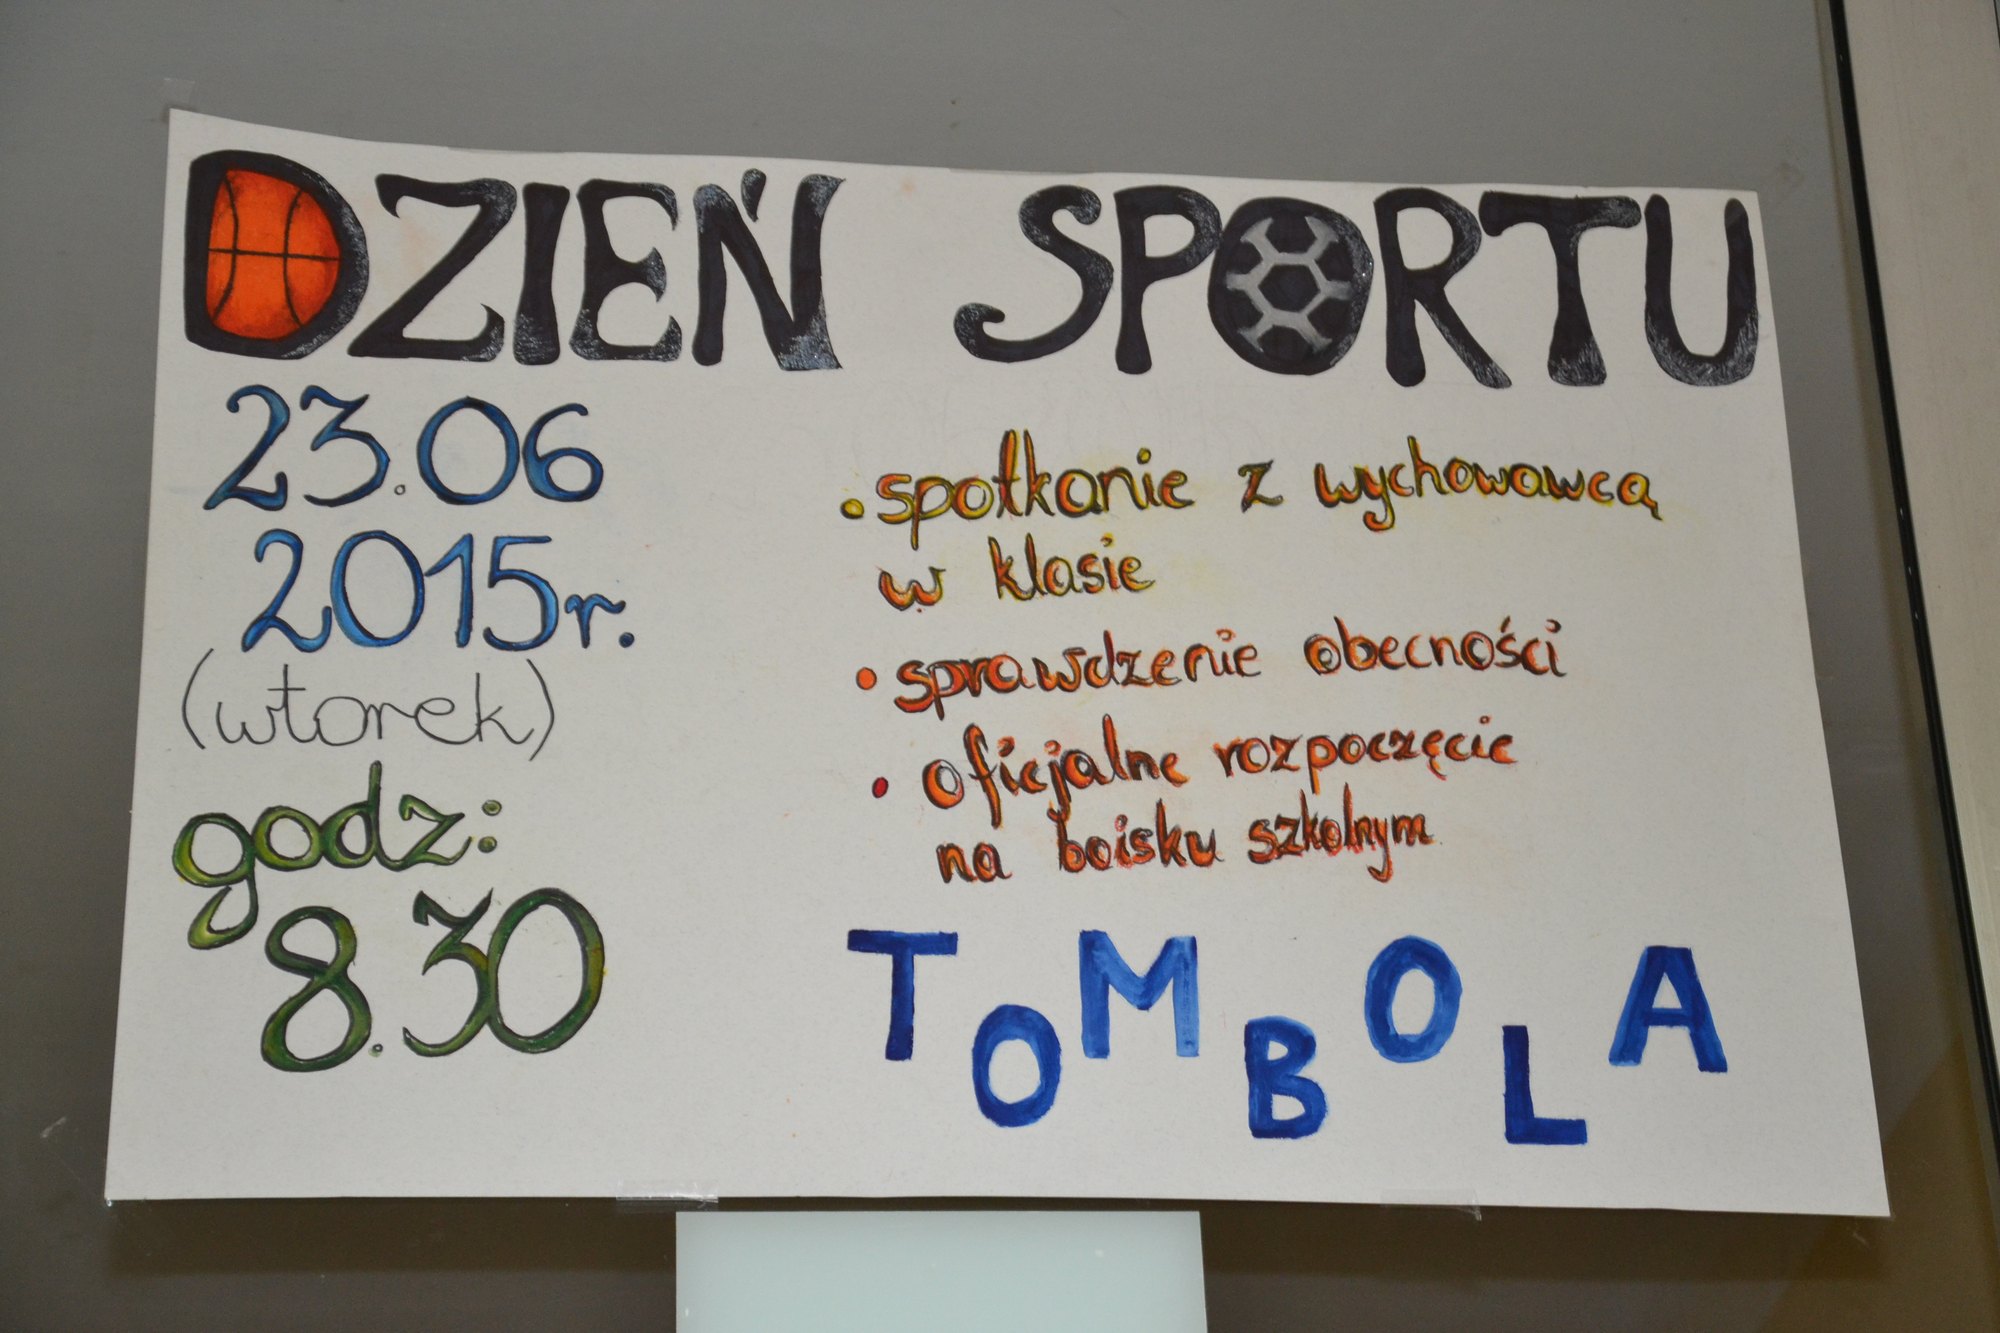 DZIEŃ SPORTU
23.06
2015r.
(wtorek)
godz:
8.30
• spotkanie z wychowawcą
w klasie
• sprawdzenie obecności
• oficjalne rozpoczęcie
na boisku szkolnym
TOMBOLA